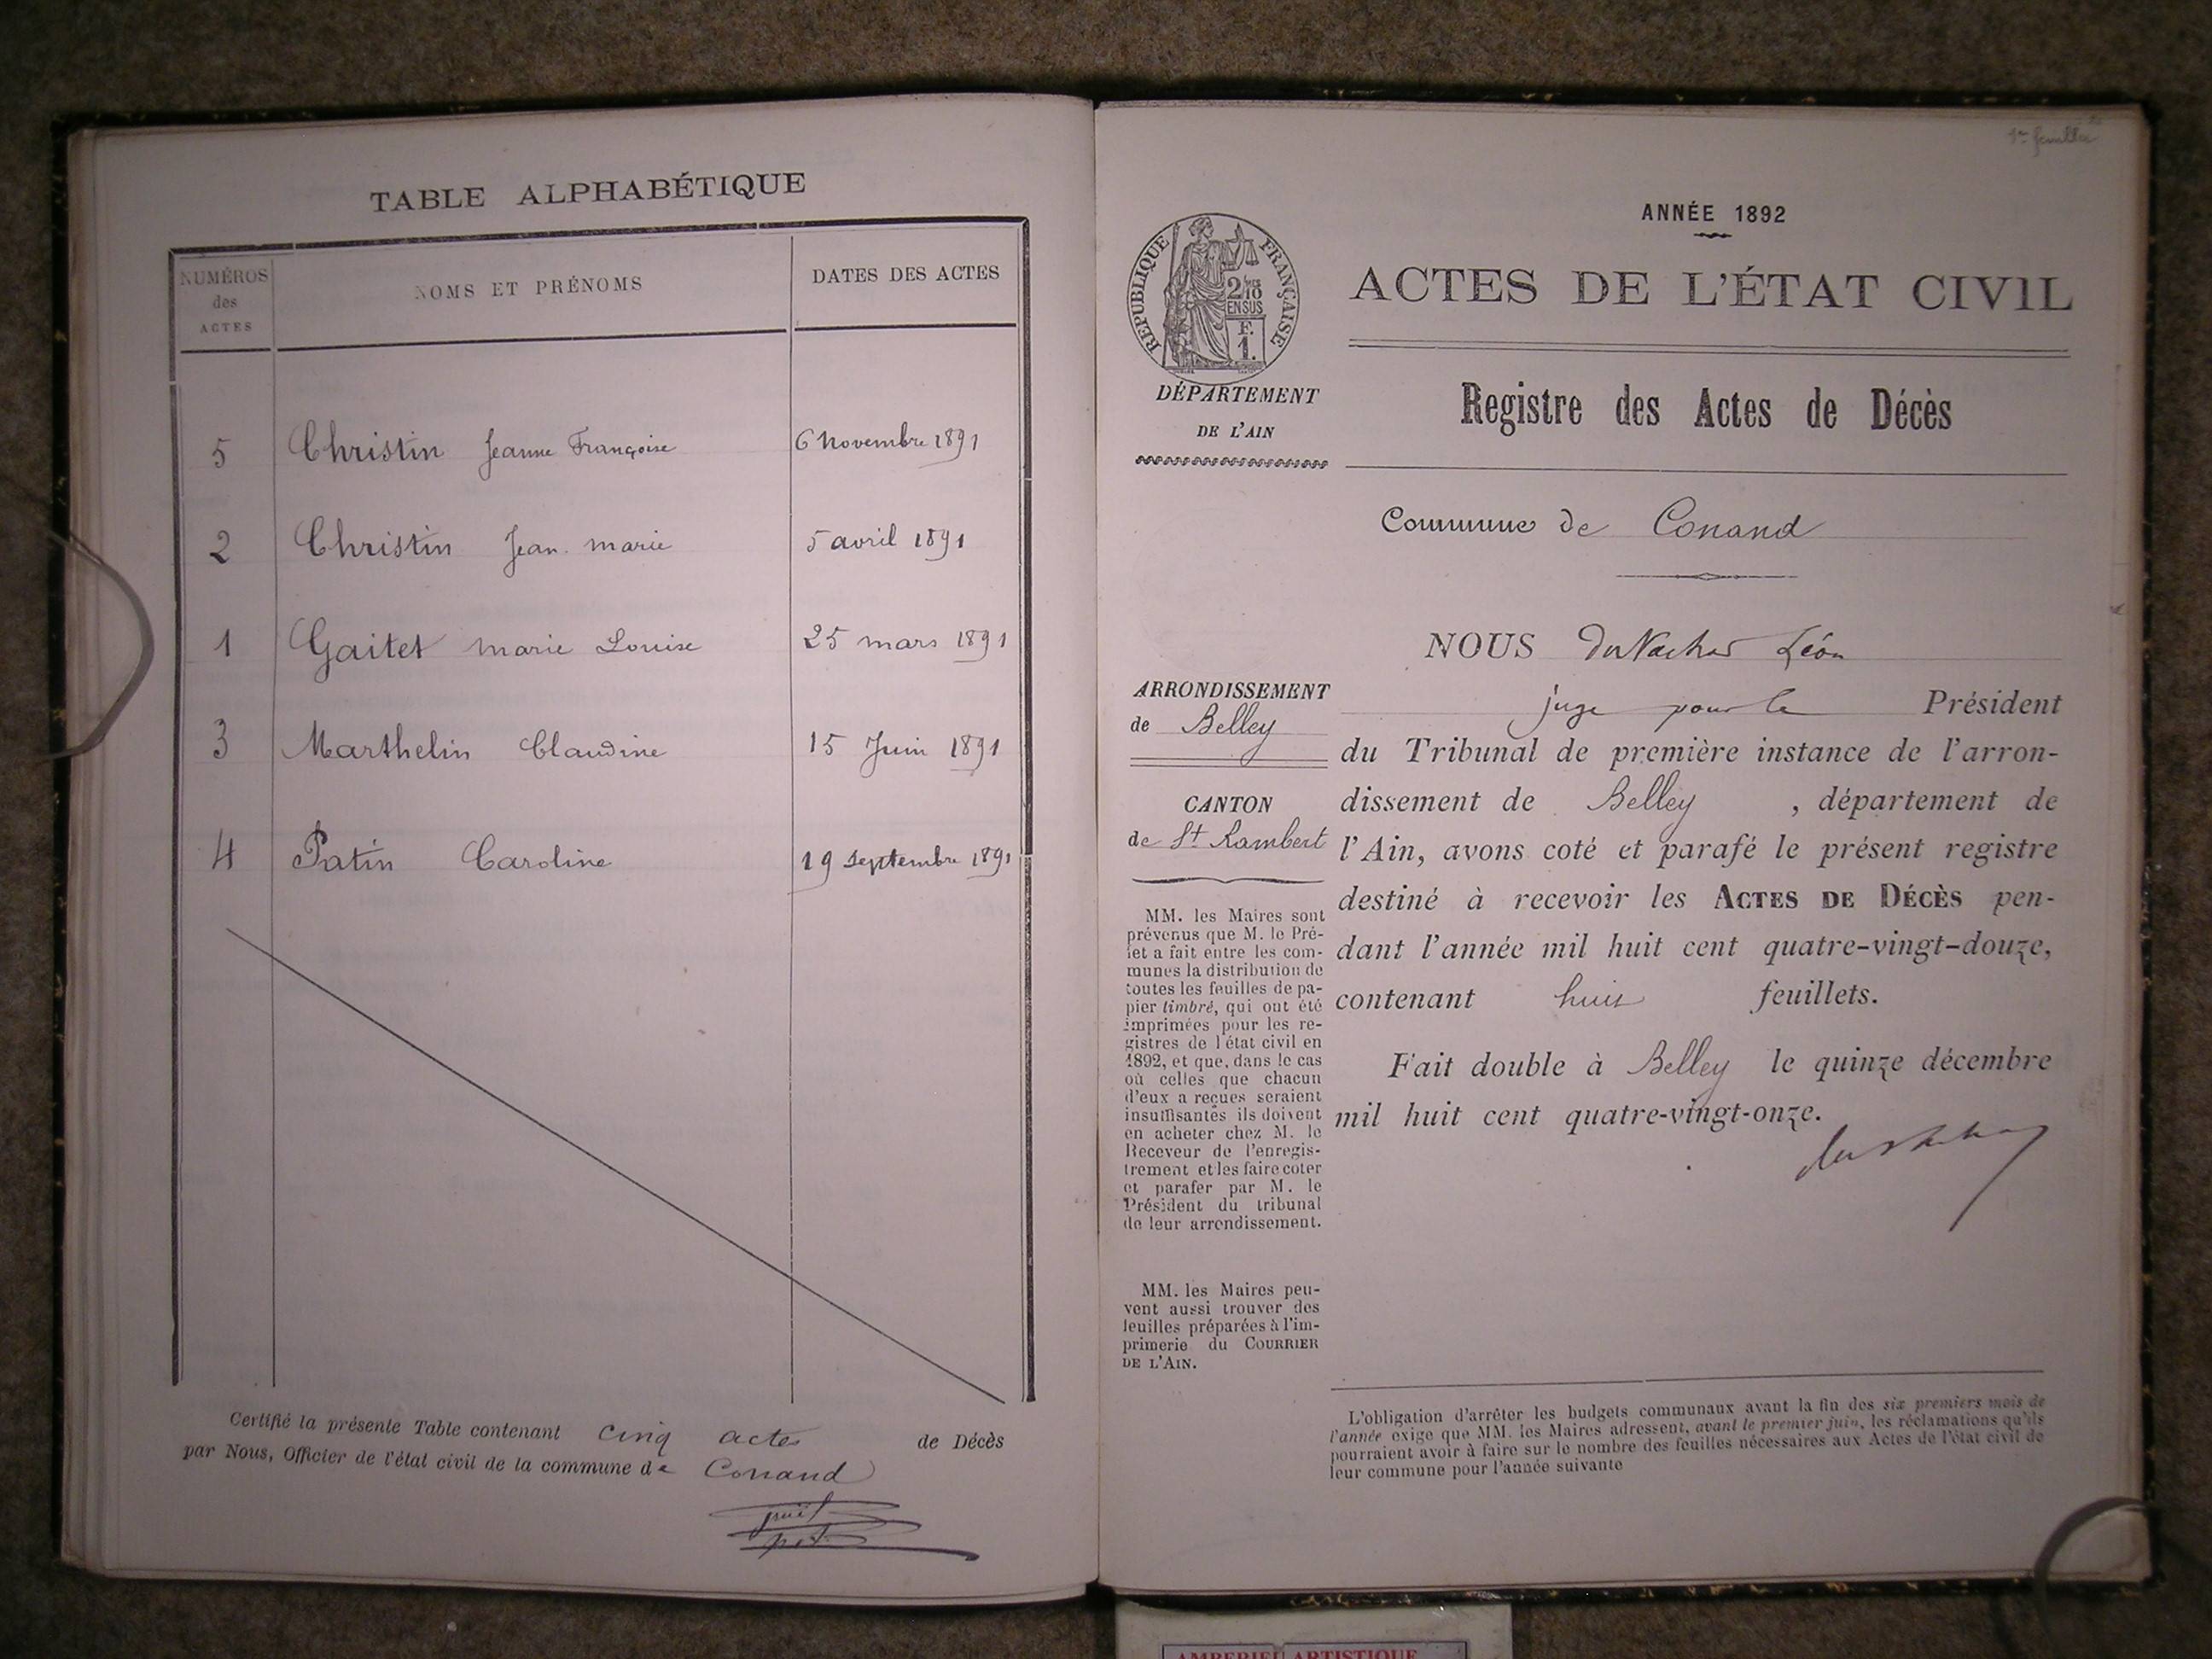 TABLE ALPHABÉTIQUE
NUMÉROS des ACTES
NOMS ET PRÉNOMS
DATES DES ACTES
5 Christin Jeanne Françoise 6 novembre 1891
2 Christin Jean marie 5 avril 1891
1 Gaitet marie Louise 25 mars 1891
3 Marthelin Claudine 15 Juin 1891
4 Patin Caroline 19 septembre 1891
Certifié la présente Table contenant cinq actes de Décès
par Nous, Officier de l'état civil de la commune de Conand
1er feuillet
ANNÉE 1892
RÉPUBLIQUE FRANÇAISE
2/10
EN SUS
F.
1.
ACTES DE L'ÉTAT CIVIL
DÉPARTEMENT
DE L'AIN
Registre des Actes de Décès
Commune de Conand
ARRONDISSEMENT
de Belley
CANTON
de St Rambert
MM. les Maires sont
prévenus que M. le Pré-
fet a fait entre les com-
munes la distribution de
toutes les feuilles de pa-
pier timbré, qui ont été
imprimées pour les re-
gistres de l'état civil en
1892, et que, dans le cas
où celles que chacun
d'eux a reçues seraient
insuffisantes ils doivent
en acheter chez M. le
Receveur de l'enregis-
trement et les faire coter
et parafer par M. le
Président du tribunal
de leur arrondissement.
MM. les Maires peu-
vent aussi trouver des
feuilles préparées à l'im-
primerie du COURRIER
DE L'AIN.
NOUS Léon
juge pour le Président
du Tribunal de première instance de l'arron-
dissement de Belley , département de
l'Ain, avons coté et parafé le présent registre
destiné à recevoir les ACTES DE DÉCÈS pen-
dant l'année mil huit cent quatre-vingt-douze,
contenant huit feuillets.
Fait double à Belley le quinze décembre
mil huit cent quatre-vingt-onze.
L'obligation d'arrêter les budgets communaux avant la fin des six premiers mois de
l'année exige que MM. les Maires adressent, avant le premier juin, les réclamations qu'ils
pourraient avoir à faire sur le nombre des feuilles nécessaires aux Actes de l'état civil de
leur commune pour l'année suivante
AMBERIEU ARTISTIQUE